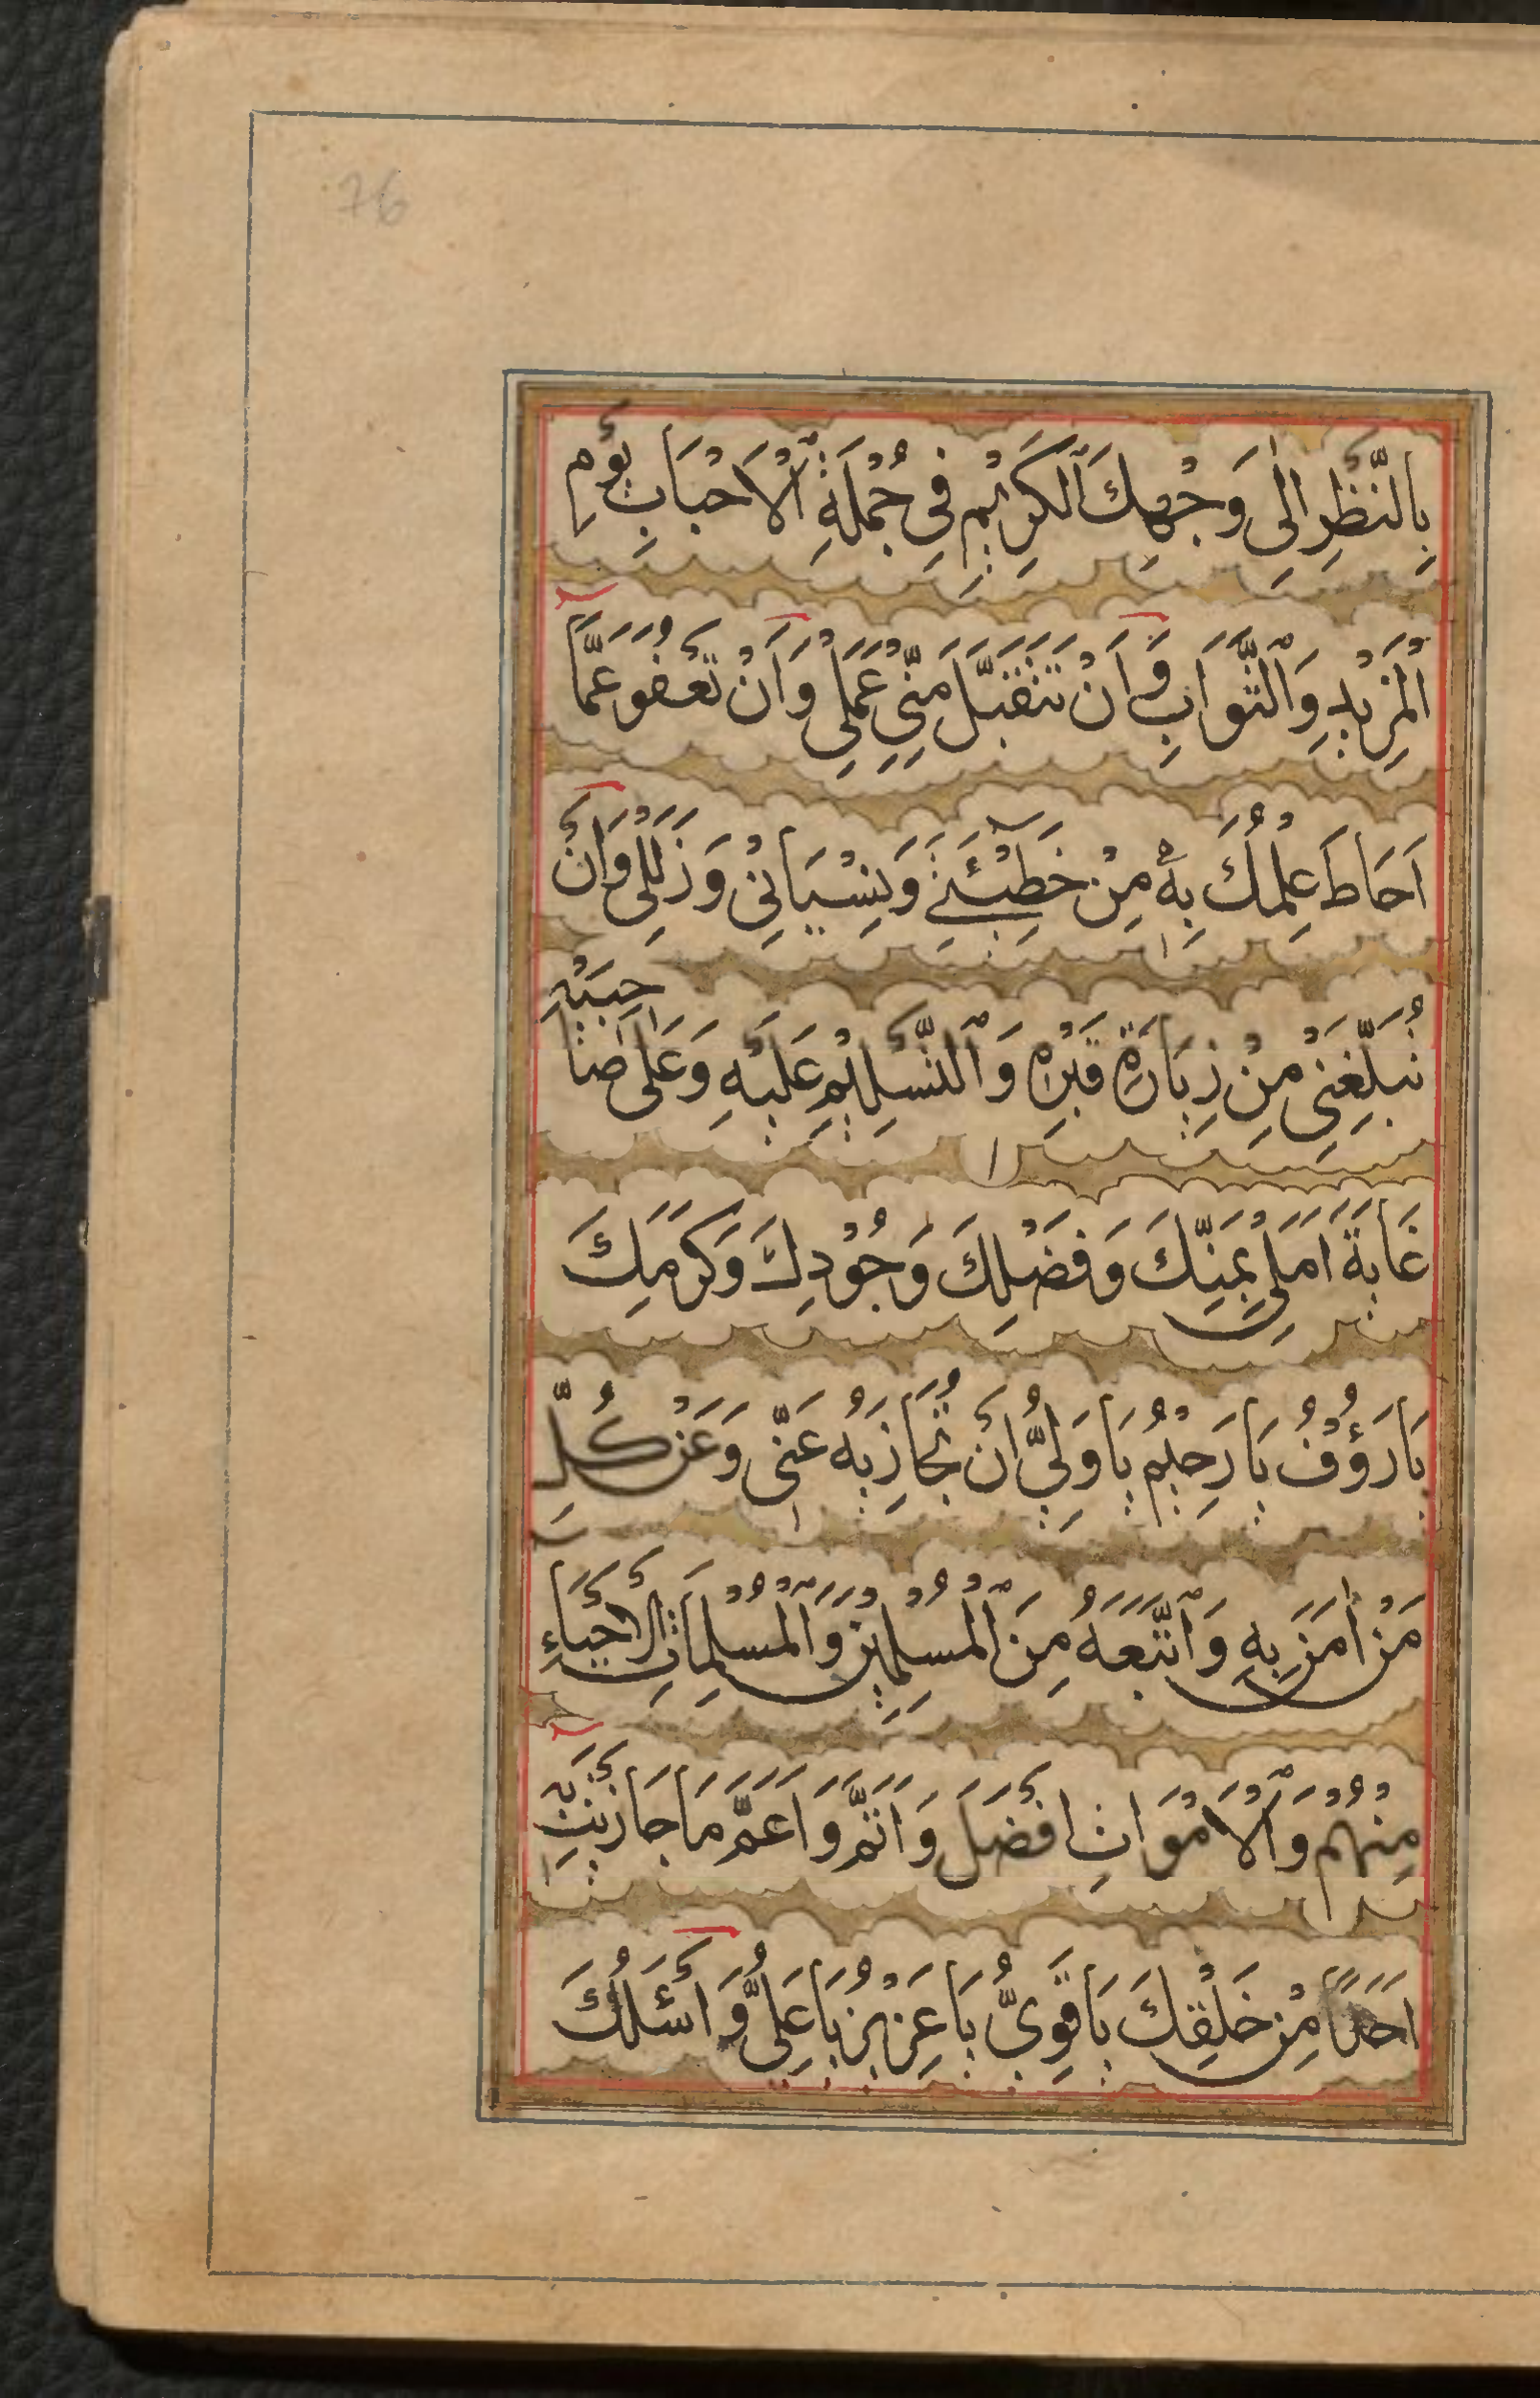 76
بِالنَّظَرِ اِلٰى وَجْهِكَ ٱلْكَرِيْمِ فِى جُمْلَةِ ٱلْاَحْبَابِ يَوْمَ
الْمَزِيْدِ وَٱلثَّوَابِ وَّاَنْ تَتَقَبَّلَ مِنِّىْ عَمَلِىْ وَاَنْ تَعْفُوَ عَمَّا
اَحَاطَ عِلْمُكَ بِهٖ مِنْ خَطِيْٓئَتِىْ وَنِسْيَانِىْ وَزَلَلِىْ وَاَنْ
تُبَلِّغَنِىْ مِنْ زِيَارَةِ قَبْرِهٖ وَٱلتَّسْلِيْمِ عَلَيْهِ وَعَلٰى صَاحِبَيْهِ
غَايَةَ اَمَلِىْ بِمَنِّكَ وَفَضْلِكَ وَجُوْدِكَ وَكَرَمِكَ
يَا رَؤُفُ يَا رَحِيْمُ يَا وَلِىُّ اَنْ تُجَازِيَهٗ عَنِّى وَعَنْ كُلِّ
مَنْ اٰمَنَ بِهٖ وَٱتَّبَعَهٗ مِنَ ٱلْمُسْلِمِيْنَ وَٱلْمُسْلِمَاتِ الْاَحْيَاءِ
مِنْهُمْ وَٱلْاَمْوَاتِ اَفْضَلَ وَاَتَمَّ وَاَعَمَّ مَا جَازَيْتَ بِهٖ
اَحَدًا مِّنْ خَلْقِكَ يَا قَوِىُّ يَا عَزِيْزُ يَا عَلِىُّ وَاَسْئَلُكَ